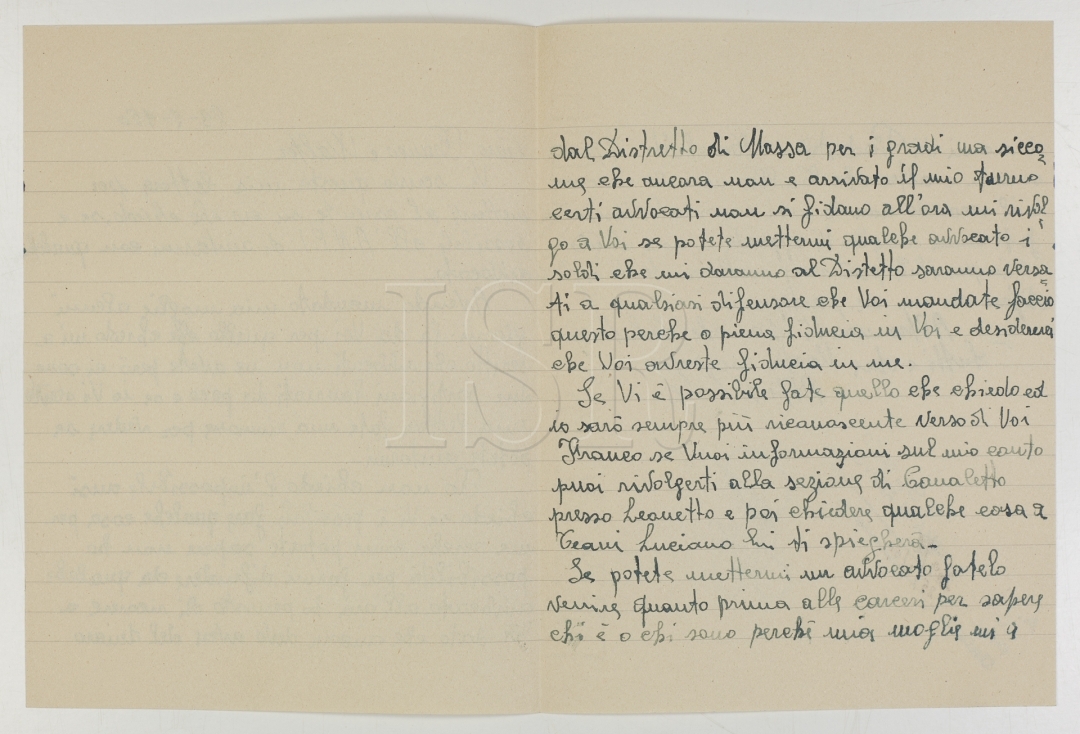 dal Distretto di Massa per i gradi ma sicco=
me che ancora non e arrivato il mio turno
certi avvocati non si fidano all'ora mi rivol=
go a Voi se potete mettermi qualche avvocato i
soldi che mi daranno al Distetto saranno versa=
ti a qualsiasi difensore che Voi mandate faccio
questo perche o piena fiducia in Voi e desidererei
che Voi avreste fiducia in me.
Se Vi è possibile fate quello che chiedo ed
io sarò sempre più riconoscente verso di Voi
Franco se Vuoi informazioni sul mio conto
puoi rivolgerti alla sezione di Canaletto
presso Leonetto e poi chiedere qualche cosa a
Teani Luciano lui ti spiegherà-
Se potete mettermi un avvocato fatelo
venire quanto prima alle carceri per sapere
chi è o chi sono perchè mia moglie mi a
ISR